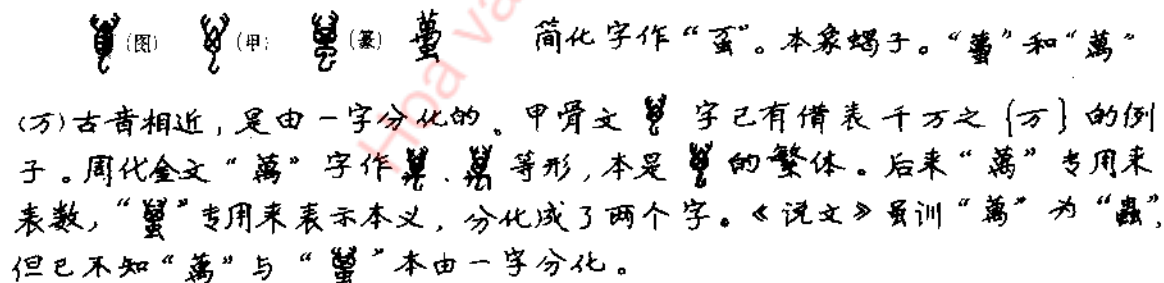 (图) (甲) (篆) 蠆 简化字作“虿”。本象蝎子。“蠆”和“萬”
(万)古音相近，是由一字分化的。甲骨文 字已有借表千万之{万}的例
子。周代金文“萬”字作 、 等形，本是 的繁体。后来“萬”专用来
表数，“蠆”专用来表示本义，分化成了两个字。《说文》虽训“萬”为“蟲”，
但已不知“萬”与“蠆”本由一字分化。
Hoa va